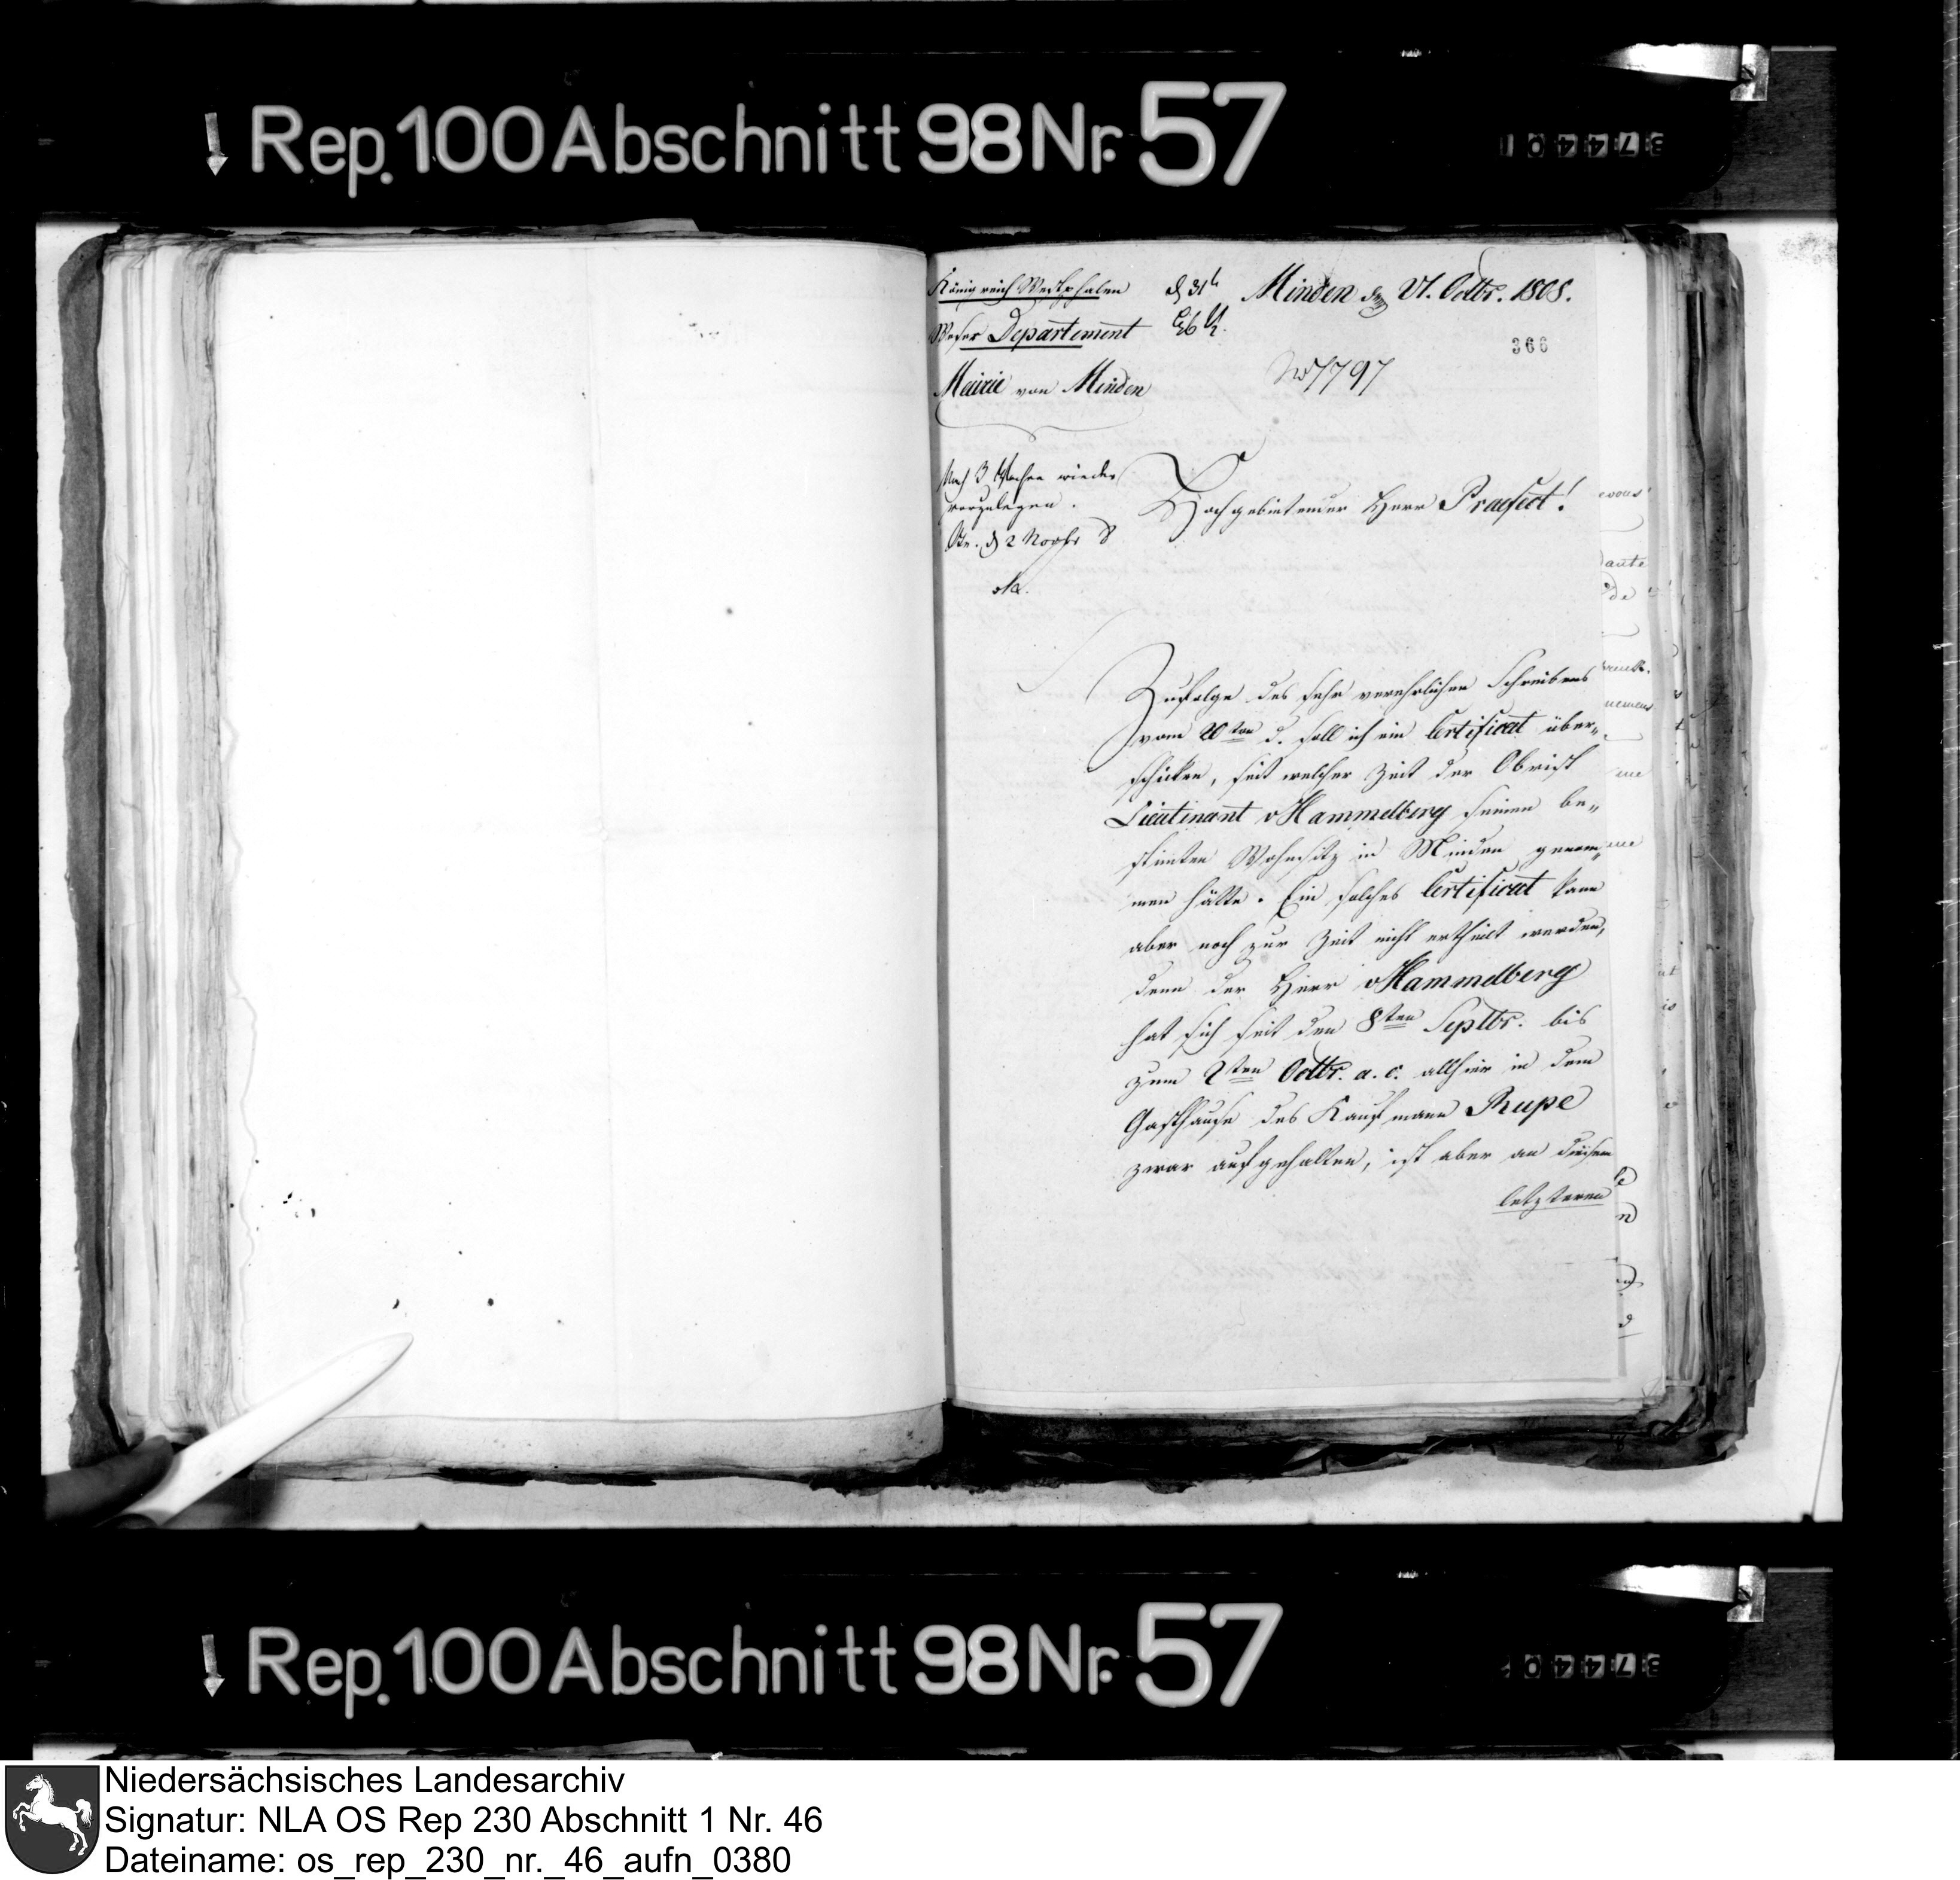 Rep. 100 Abschnitt 98 Nr. 57
Königreich Westphalen
Weser Departement
Mairie von Minden
d 31t
Minden den 21. Octbr. 1808.
366
No 7797
Nach 3 Wochen wieder
vorzulegen.
d 2 Novbr 8
Hochgebietender Herr Praefect!
Zufolge des sehr verehrlichen Schreibens
vom 20ten d. soll ich ein Certificat über„
schicken, seit welcher Zeit der Obrist
Lieutinant v Hammelberg seinen be„
stimten Wohnsitz in Minden genom„
men hätte. Ein solches Certificat kann
aber noch zur Zeit nicht ertheilt werden,
denn der Herr v Hammelberg
hat sich seit den 8ten Septbr. bis
zum 2ten Octbr. a. c. allhier in dem
Gasthause des Kaufmann Rupe
zwar aufgehalten, ist aber an diesem
letzteren
Rep. 100 Abschnitt 98 Nr. 57
Niedersächsisches Landesarchiv
Signatur: NLA OS Rep 230 Abschnitt 1 Nr. 46
Dateiname: os_rep_230_nr._46_aufn_0380